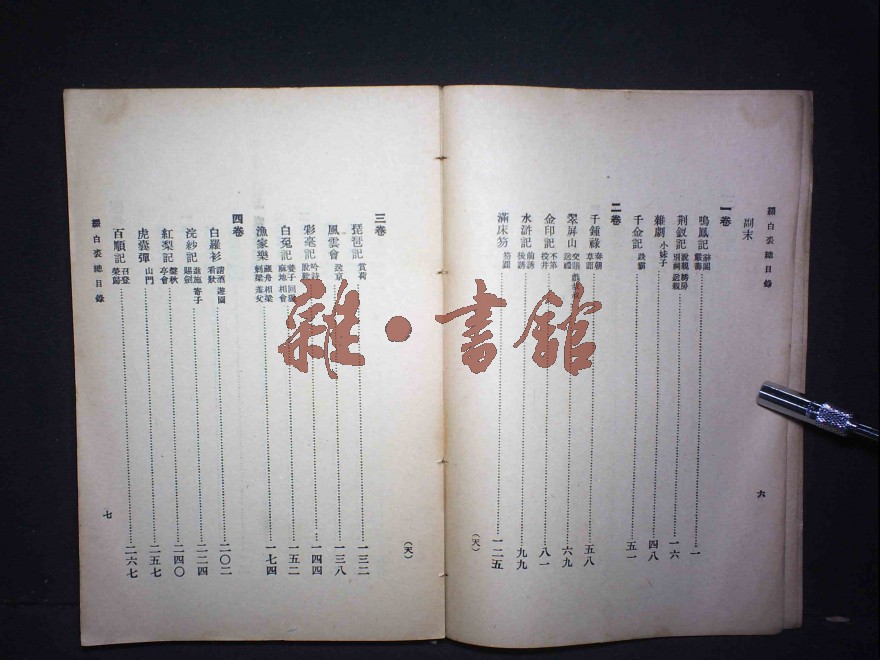 綴白裘總目錄
副末
一卷
鳴鳳記 辭閣 嚴壽 一
荆釵記 說親 繡房 別祠 送親 一六
雜劇 小妹子 四八
千金記 跌霸 五一
二卷
千鍾祿 奏朝 草詔 五八
翠屏山 交賬 送禮 六九
金印記 不第 投井 八一
水滸記 前誘 後誘 九九
滿床笏 笏圓 一二五
(天)
六
三卷
琵琶記 賞荷 一三二
風雲會 送京 一三八
彩毫記 吟詩 脫靴 一四四
白兔記 養子 回獵 麻地 相會 一五二
漁家樂 藏舟 相梁 刺梁 羞父 一七四
四卷
白羅衫 請酒 遊園 看狀 二〇二
浣紗記 進施 寄子 賜劍 二二四
紅梨記 盤秋 亭會 二四〇
虎囊彈 山門 二五七
百順記 召登 榮歸 二六七
(天)
綴白裘總目錄
七
雜·書館